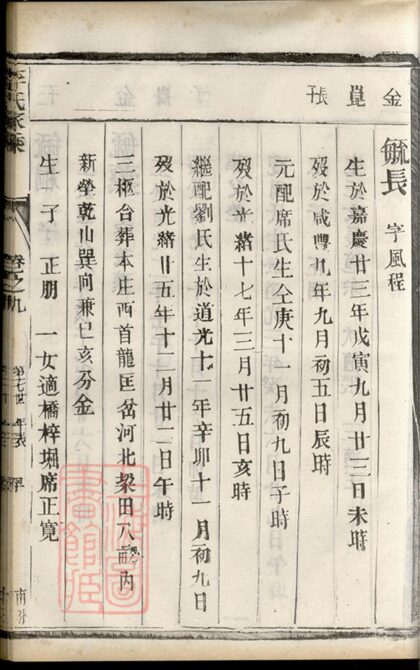 金 崑 㭃
毓長 字風程
生於嘉慶廿三年戊寅九月廿三日未時
歿於咸豐九年九月初五日辰時
元配席氏生仝庚十一月初九日子時
歿於光緒十七年三月廿五日亥時
繼配劉氏生於道光十一年辛卯十一月初九日
歿於光緒廿五年十二月廿二日午時
三柩合葬本庄西首龍匡岔河北梁田八畝內
新塋乾山巽向兼巳亥分金
生子 正朋 一女適橋梓堀席正寬
李氏家乘
卷之九